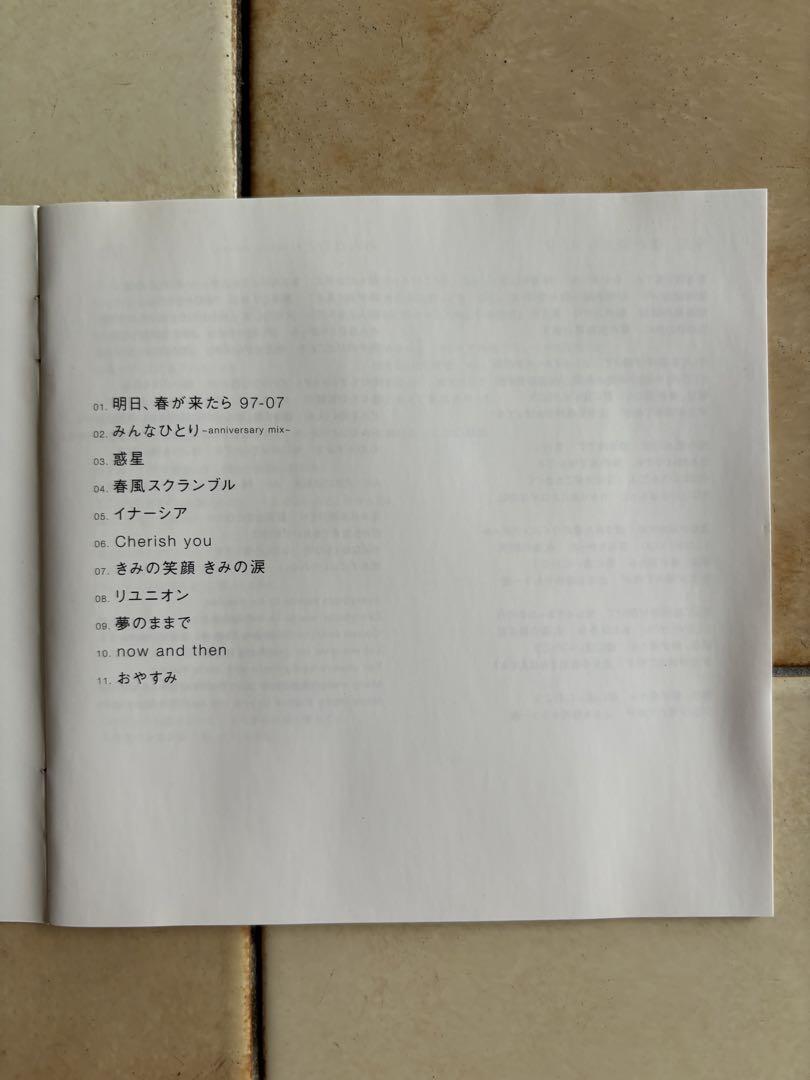 01. 明日、春が来たら 97-07
02. みんなひとり~anniversary mix~
03. 惑星
04. 春風スクランブル
05. イナーシア
06. Cherish you
07. きみの笑顔 きみの涙
08. リユニオン
09. 夢のままで
10. now and then
11. おやすみ